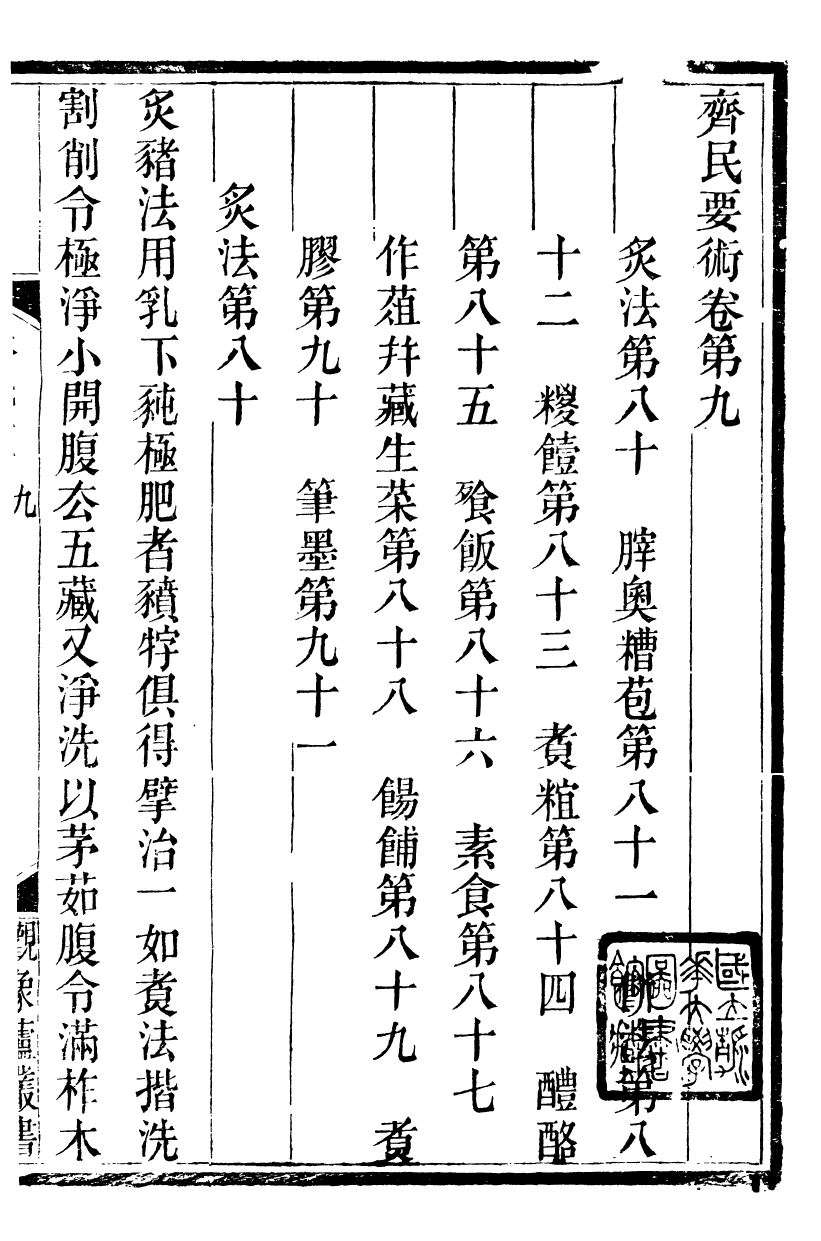 齊民要術卷第九
炙法第八十 脺奧糟苞第八十一 餅法第八
十二 糉䊦第八十三 煑䊎第八十四 醴酪
第八十五 飱飯第八十六 素食第八十七
作葅并藏生菜第八十八 餳餔第八十九 煑
膠第九十 筆墨第九十一
炙法第八十
炙豬法用乳下豘極肥者豶牸俱得擘治一如煑法揩洗
割削令極淨小開腹去五藏又淨洗以茅茹腹令滿柞木
九
觀象廬叢書
國立清華大學圖書館藏